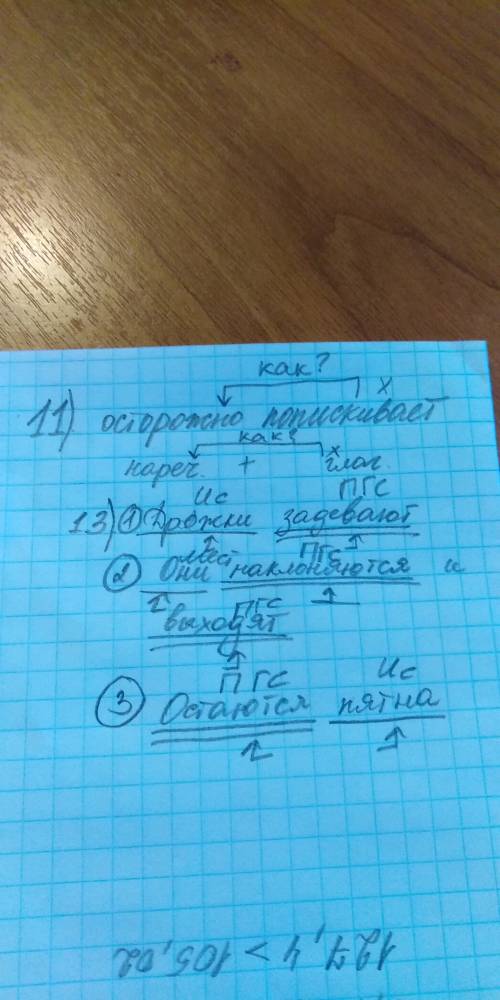 как?
х
11) осторожно попискивает
как?
х
нареч. + глаг.
Ис ПГС
13) 1 Дрожки задевают
мест ПГС
2 Они наклоняются и
ПГС
выходят
ПГС Ис
3 Остаются пятна
127,4 > 105,02